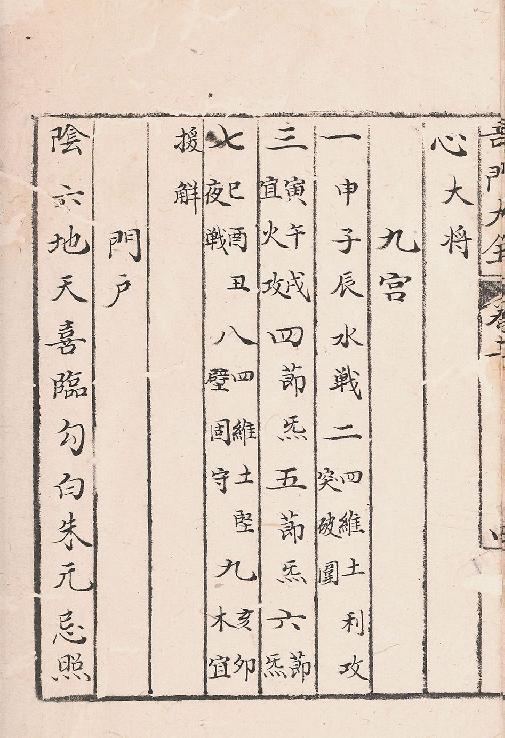 門大全
心大将
九宫
一申子辰水戦二四維土利攻突破圍
三寅午戌宜火攻四節炁五節炁六節炁
七巳酉丑夜戦八四維土堅壁固守九亥卯木宜
援觧
門户
陰六地天喜臨勾白朱元忌照